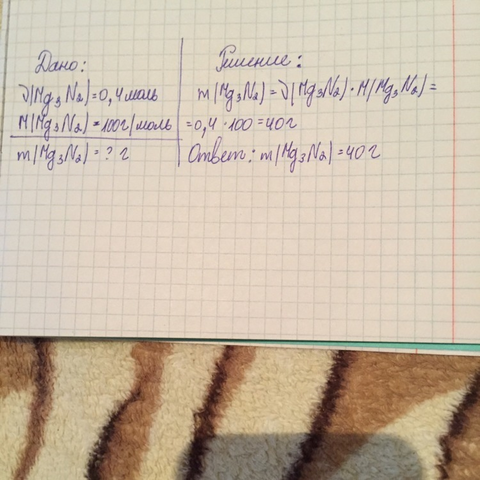 Дано:
ν(Mg₃N₂)=0,4моль
M(Mg₃N₂)=100г/моль
m(Mg₃N₂)=? г
Решение:
m(Mg₃N₂)=ν(Mg₃N₂)·M(Mg₃N₂)=
=0,4·100=40г
Ответ: m(Mg₃N₂)=40г